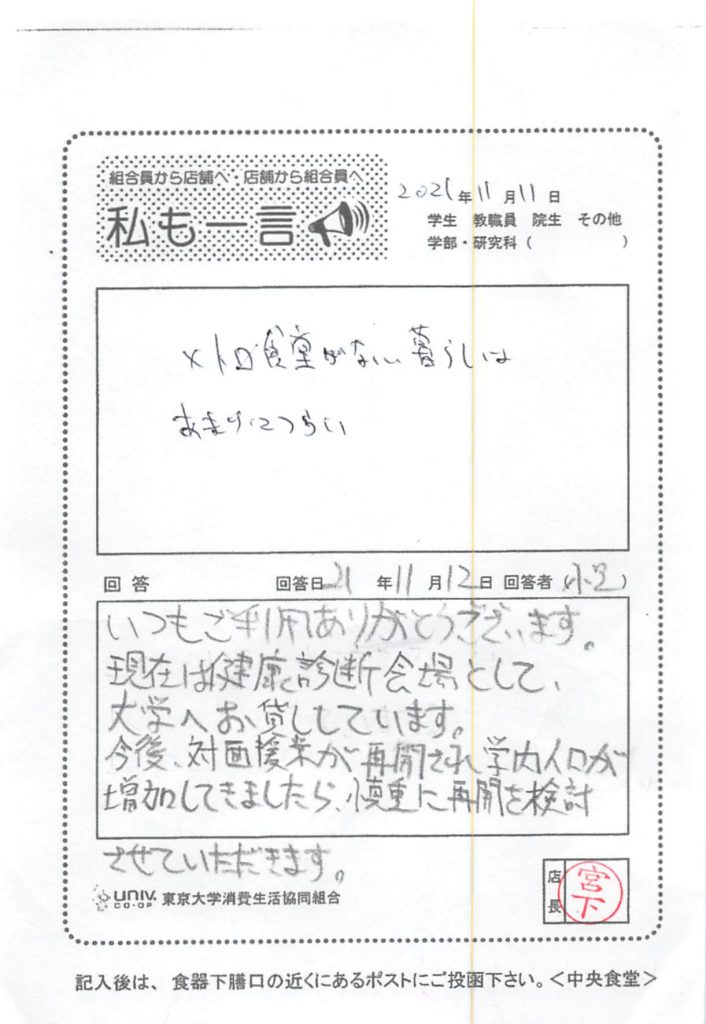 組合員から店舗へ・店舗から組合員へ
私も一言
2021年11月11日
学生 教職員 院生 その他
学部・研究科( )
メトロ食堂がない暮らしは
あまりにつらい
回答 回答日21年11月12日 回答者( )
いつもご利用ありがとうございます。
現在は健康診断会場として、
大学へお貸ししています。
今後、対面授業が再開され学内人口が
増加してきましたら、慎重に再開を検討
させていただきます。
UNIV. CO-OP 東京大学消費生活協同組合
店長 宮下
記入後は、食器下膳口の近くにあるポストにご投函下さい。<中央食堂>